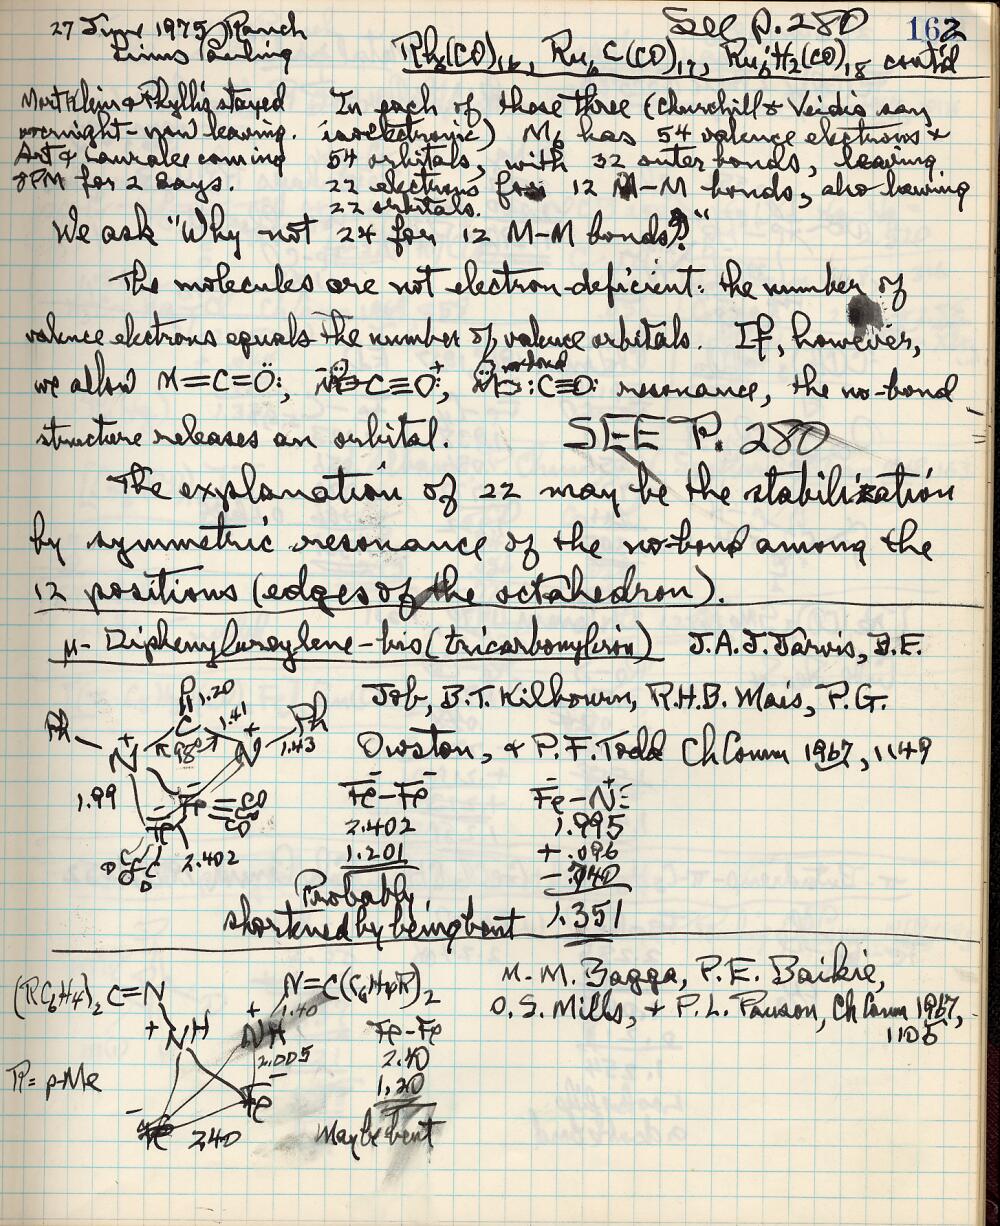 See p. 280 162
27 June 1975, Ranch
Linus Pauling
Rh6(CO)16, Ru6C(CO)17, Ru6H2(CO)18 cont'd
Mort Klein & Phyllis stayed
overnight - now leaving.
Art & Lauralee coming
8PM for 2 days.
In each of these three (Churchill & Veidis say
isoelectronic) M6 has 54 valence electrons &
54 orbitals, with 32 outer bonds, leaving
22 electrons for 12 M-M bonds, also having
22 orbitals.
We ask "Why not 24 for 12 M-M bonds?"
The molecules are not electron-deficient: the number of
valence electrons equals the number of valence orbitals. If, however,
we allow M=C=Ö:, M̈-C≡O:+, M̈ no bond :C≡O: resonance, the no-bond
structure releases an orbital. SEE P. 280
The explanation of 22 may be the stabilization
by symmetric resonance of the no-bond among the
12 positions (edges of the octahedron).
μ-Diphenylureylene-bis(tricarbonyliron) J.A.J. Jarvis, B.E.
Job, B.T. Kilbourn, R.H.B. Mais, P.G.
Owston, & P.F. Todd ChComm 1967, 1149
O 1.20
C 1.41
Ph N+ 98° N+ 1.43 Ph
1.99
Fe- Fe- CO CO
2.402
Fe- - Fe-
2.402
1.201
Probably
shortened by being bent
Fe- - N+≡
1.995
+ .096
- .740
1.351
M. M. Bagga, P. E. Baikie,
O. S. Mills, & P. L. Pauson, Ch Comm 1967,
1105
(RC6H4)2 C=N N=C(C6H4R)2
1.40
+ NH + NH
2.005
R = p-Me
Fe- Fe-
2.40
Fe-Fe
2.40
1.20
Maybe bent